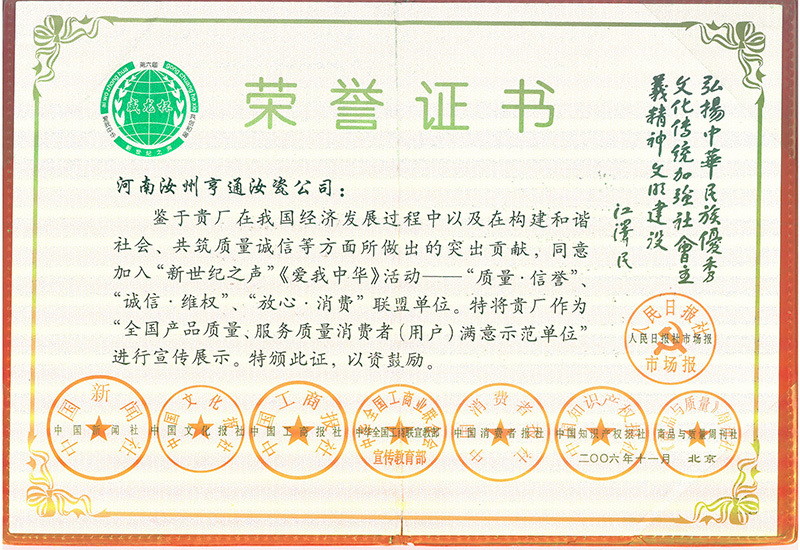 第六届
爱我中华
共创和谐
新世纪之声
荣誉证书
弘揚中華民族優秀
文化传统加強社會主
義精神文明建设
江澤民
河南汝州亨通汝瓷公司：
鉴于贵厂在我国经济发展过程中以及在构建和谐
社会、共筑质量诚信等方面所做出的突出贡献，同意
加入“新世纪之声”《爱我中华》活动——“质量·信誉”、
“诚信·维权”、“放心·消费”联盟单位。特将贵厂作为
“全国产品质量、服务质量消费者（用户）满意示范单位”
进行宣传展示。特颁此证，以资鼓励。
人民日报社
人民日报社市场报
市场报
中国新闻社
中国新闻社
中国文化报社
中国文化报社
中国工商报社
中国工商报社
中华全国工商联宣教部
宣传教育部
中国消费者报社
中国消费者报社
中国知识产权报社
中国知识产权报社
商品与质量周刊社
二〇〇六年十一月 北京